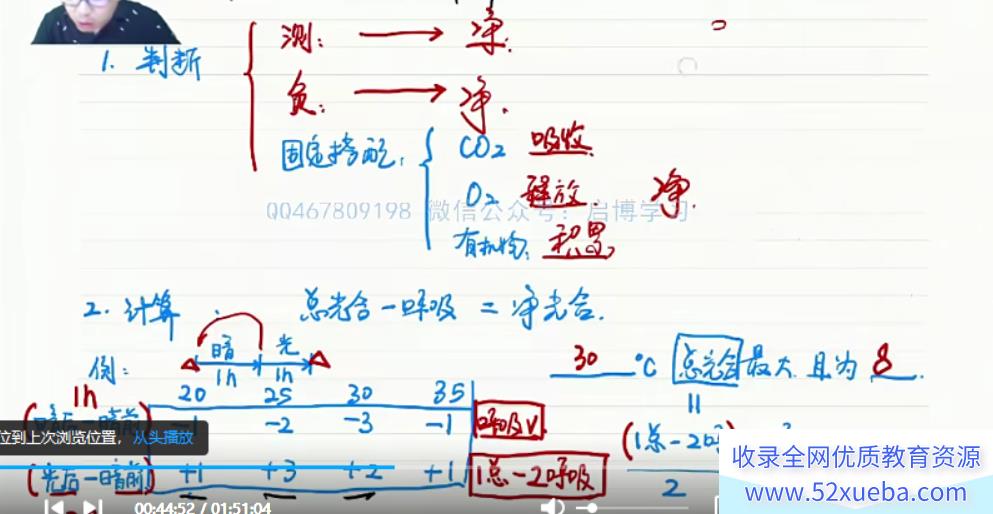 测: → 净.
1. 判断
负: → 净.
固定搭配: CO2 吸收.
O2 释放. 净.
QQ467809198 微信公众号:启博学习
有机物: 积累,
2. 计算: 总光合-呼吸 = 净光合.
暗 光
例: 1h 1h
30 ℃ 总光合 最大 且为 8.
1h 20 25 30 35
(暗后-暗前) -1 -2 -3 -1 呼吸V.
位到上次浏览位置, 从头播放
(光后-暗前) +1 +3 +2 +1 1总-2呼吸
2
收录全网优质教育资源
www.52xueba.com
00:44:52 / 01:51:04